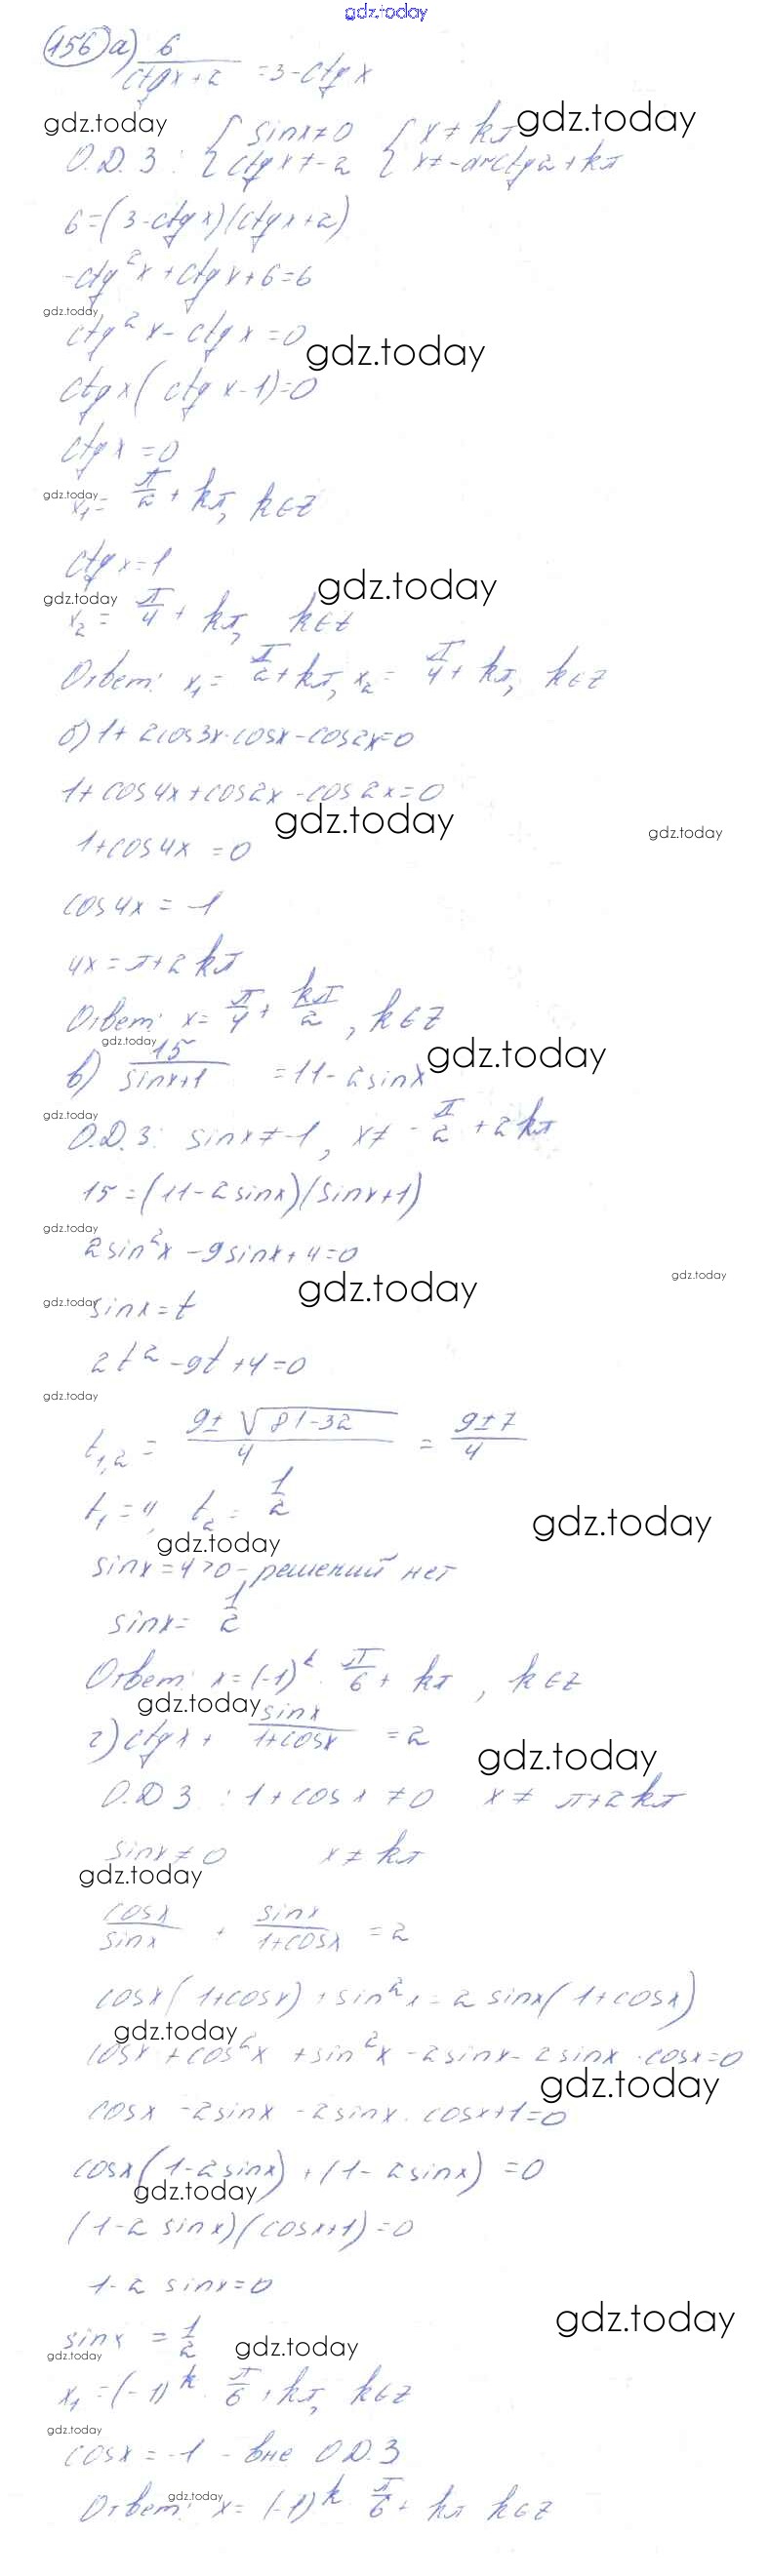 gdz.today
156 а) 6/(ctgx+2) =3-ctgx
gdz.today
gdz.today
О.Д.З: { sinx≠0 { x≠kπ
ctgx≠-2 x≠-arcctg2+kπ
6=(3-ctgx)(ctgx+2)
-ctg²x+ctgx+6=6
gdz.today
ctg²x-ctgx=0
gdz.today
ctgx(ctgx-1)=0
ctgx=0
gdz.today
x₁= π/2+kπ, k∈Z
ctgx=1
gdz.today
gdz.today
x₂= π/4+kπ, k∈Z
Ответ: x₁= π/2+kπ, x₂= π/4+kπ, k∈Z
б) 1+2cos3x·cosx-cos2x=0
1+cos4x+cos2x-cos2x=0
gdz.today
gdz.today
1+cos4x=0
cos4x=-1
4x=π+2kπ
Ответ: x= π/4+kπ/2, k∈Z
gdz.today
gdz.today
в) 15/(sinx+1) =11-2sinx
gdz.today
О.Д.З: sinx≠-1, x≠-π/2+2kπ
15=(11-2sinx)(sinx+1)
gdz.today
2sin²x-9sinx+4=0
gdz.today
gdz.today
gdz.today
sinx=t
2t²-9t+4=0
gdz.today
t₁,₂= (9±√81-32)/4 = (9±7)/4
t₁=4, t₂= 1/2
gdz.today
gdz.today
sinx=4>0-решений нет
sinx= 1/2
Ответ: x=(-1)ᵏ·π/6+kπ, k∈Z
gdz.today
г) ctgx+ sinx/(1+cosx) =2
gdz.today
О.Д.З: 1+cosx≠0 x≠π+2kπ
sinx≠0 x≠kπ
gdz.today
cosx/sinx + sinx/(1+cosx) =2
cosx(1+cosx)+sin²x=2sinx(1+cosx)
gdz.today
cosx+cos²x+sin²x-2sinx-2sinx·cosx=0
gdz.today
cosx-2sinx-2sinx·cosx+1=0
cosx(1-2sinx)+(1-2sinx)=0
gdz.today
(1-2sinx)(cosx+1)=0
1-2sinx=0
gdz.today
sinx= 1/2
gdz.today
gdz.today
x₁=(-1)ᵏ·π/6+kπ, k∈Z
gdz.today
cosx=-1-вне О.Д.З
gdz.today
Ответ: x=(-1)ᵏ·π/6+kπ k∈Z